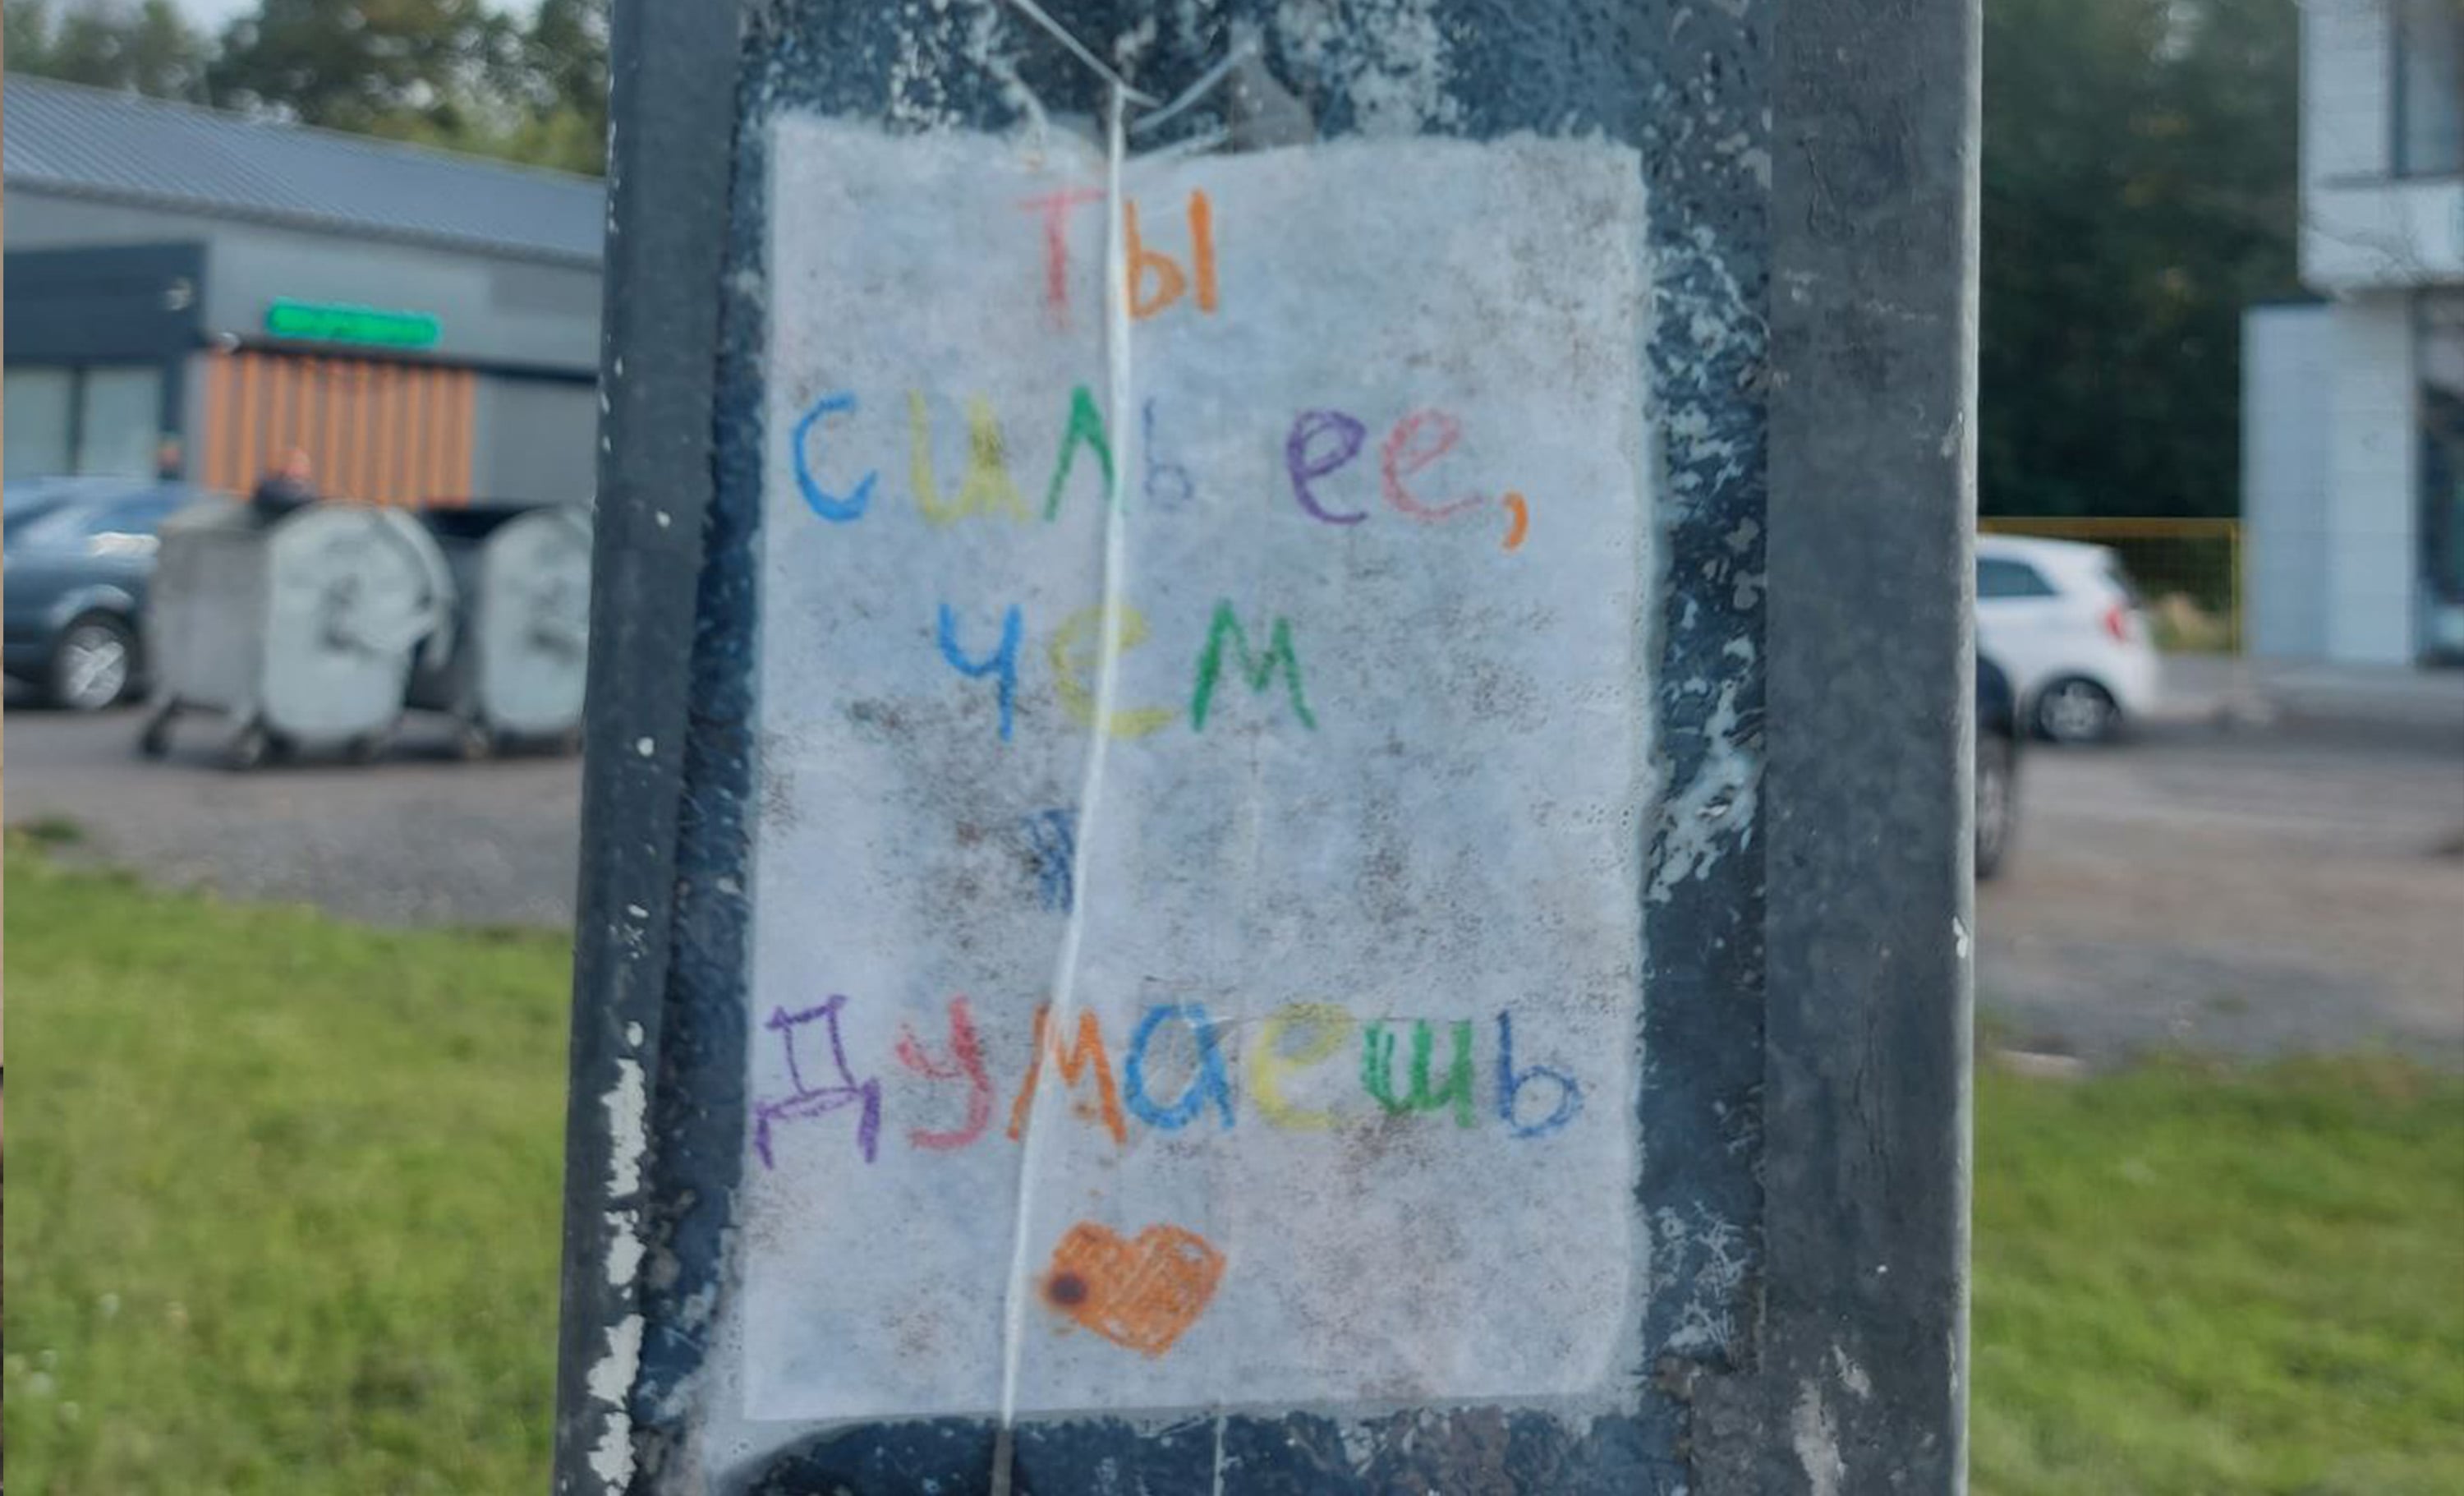 ты
силь ее,
чем
думаешь